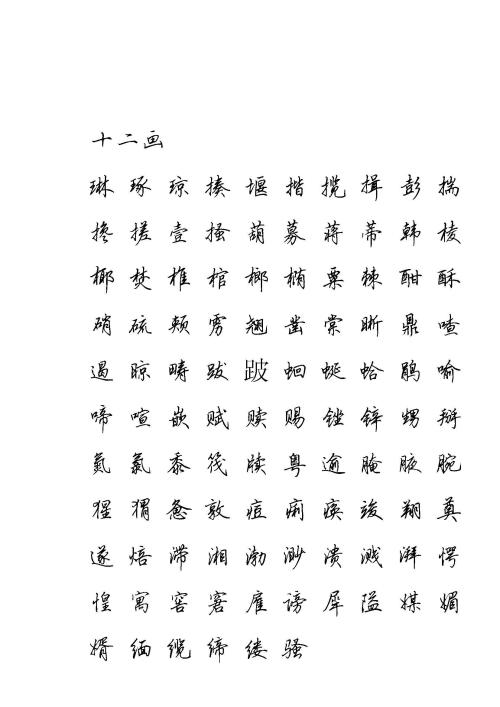 十二画
琳 琢 琼 揍 堰 揩 揽 揖 彭 揣
搀 搓 壹 搔 葫 募 蒋 蒂 韩 棱
椰 焚 椎 棺 榔 椭 粟 棘 酣 酥
硝 硫 颊 雳 翘 凿 棠 晰 鼎 喳
遏 晾 畴 跋 跛 蛔 蜒 蛤 鹃 喻
啼 喧 嵌 赋 赎 赐 锉 锌 甥 掰
氮 氯 黍 筏 牍 粤 逾 腌 腋 腕
猩 猬 惫 敦 痘 痢 痪 竣 翔 奠
遂 焙 滞 湘 渤 渺 溃 溅 湃 愕
惶 寓 窖 窘 雇 谤 犀 隘 媒 媚
婿 缅 缆 缔 缕 骚